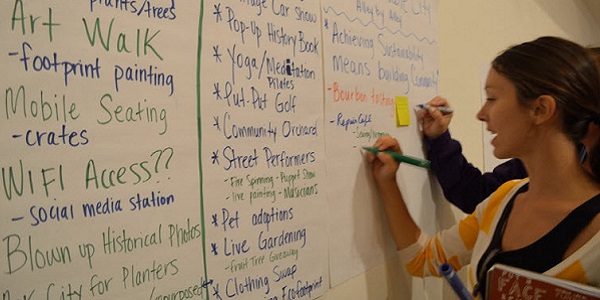 plants/trees
Art Walk
-footprint painting
Mobile Seating
-crates
WIFI Access??
-social media station
Blown up Historical Photos
City for Planters
Car Show
* Pop-Up History Book
* Yoga/Meditation
Pilates
* Put-Put Golf
* Community Orchard
* Street Performers
- Fire Spinning - Puppet Show
- live painting - Musicians
* Pet adoptions
* Live Gardening
- Fruit Tree Giveaway
* Clothing Swap
City
Alley by Alley
* Achieving Sustainability
Means building Community
- Bourbon tasting
- Repair Café